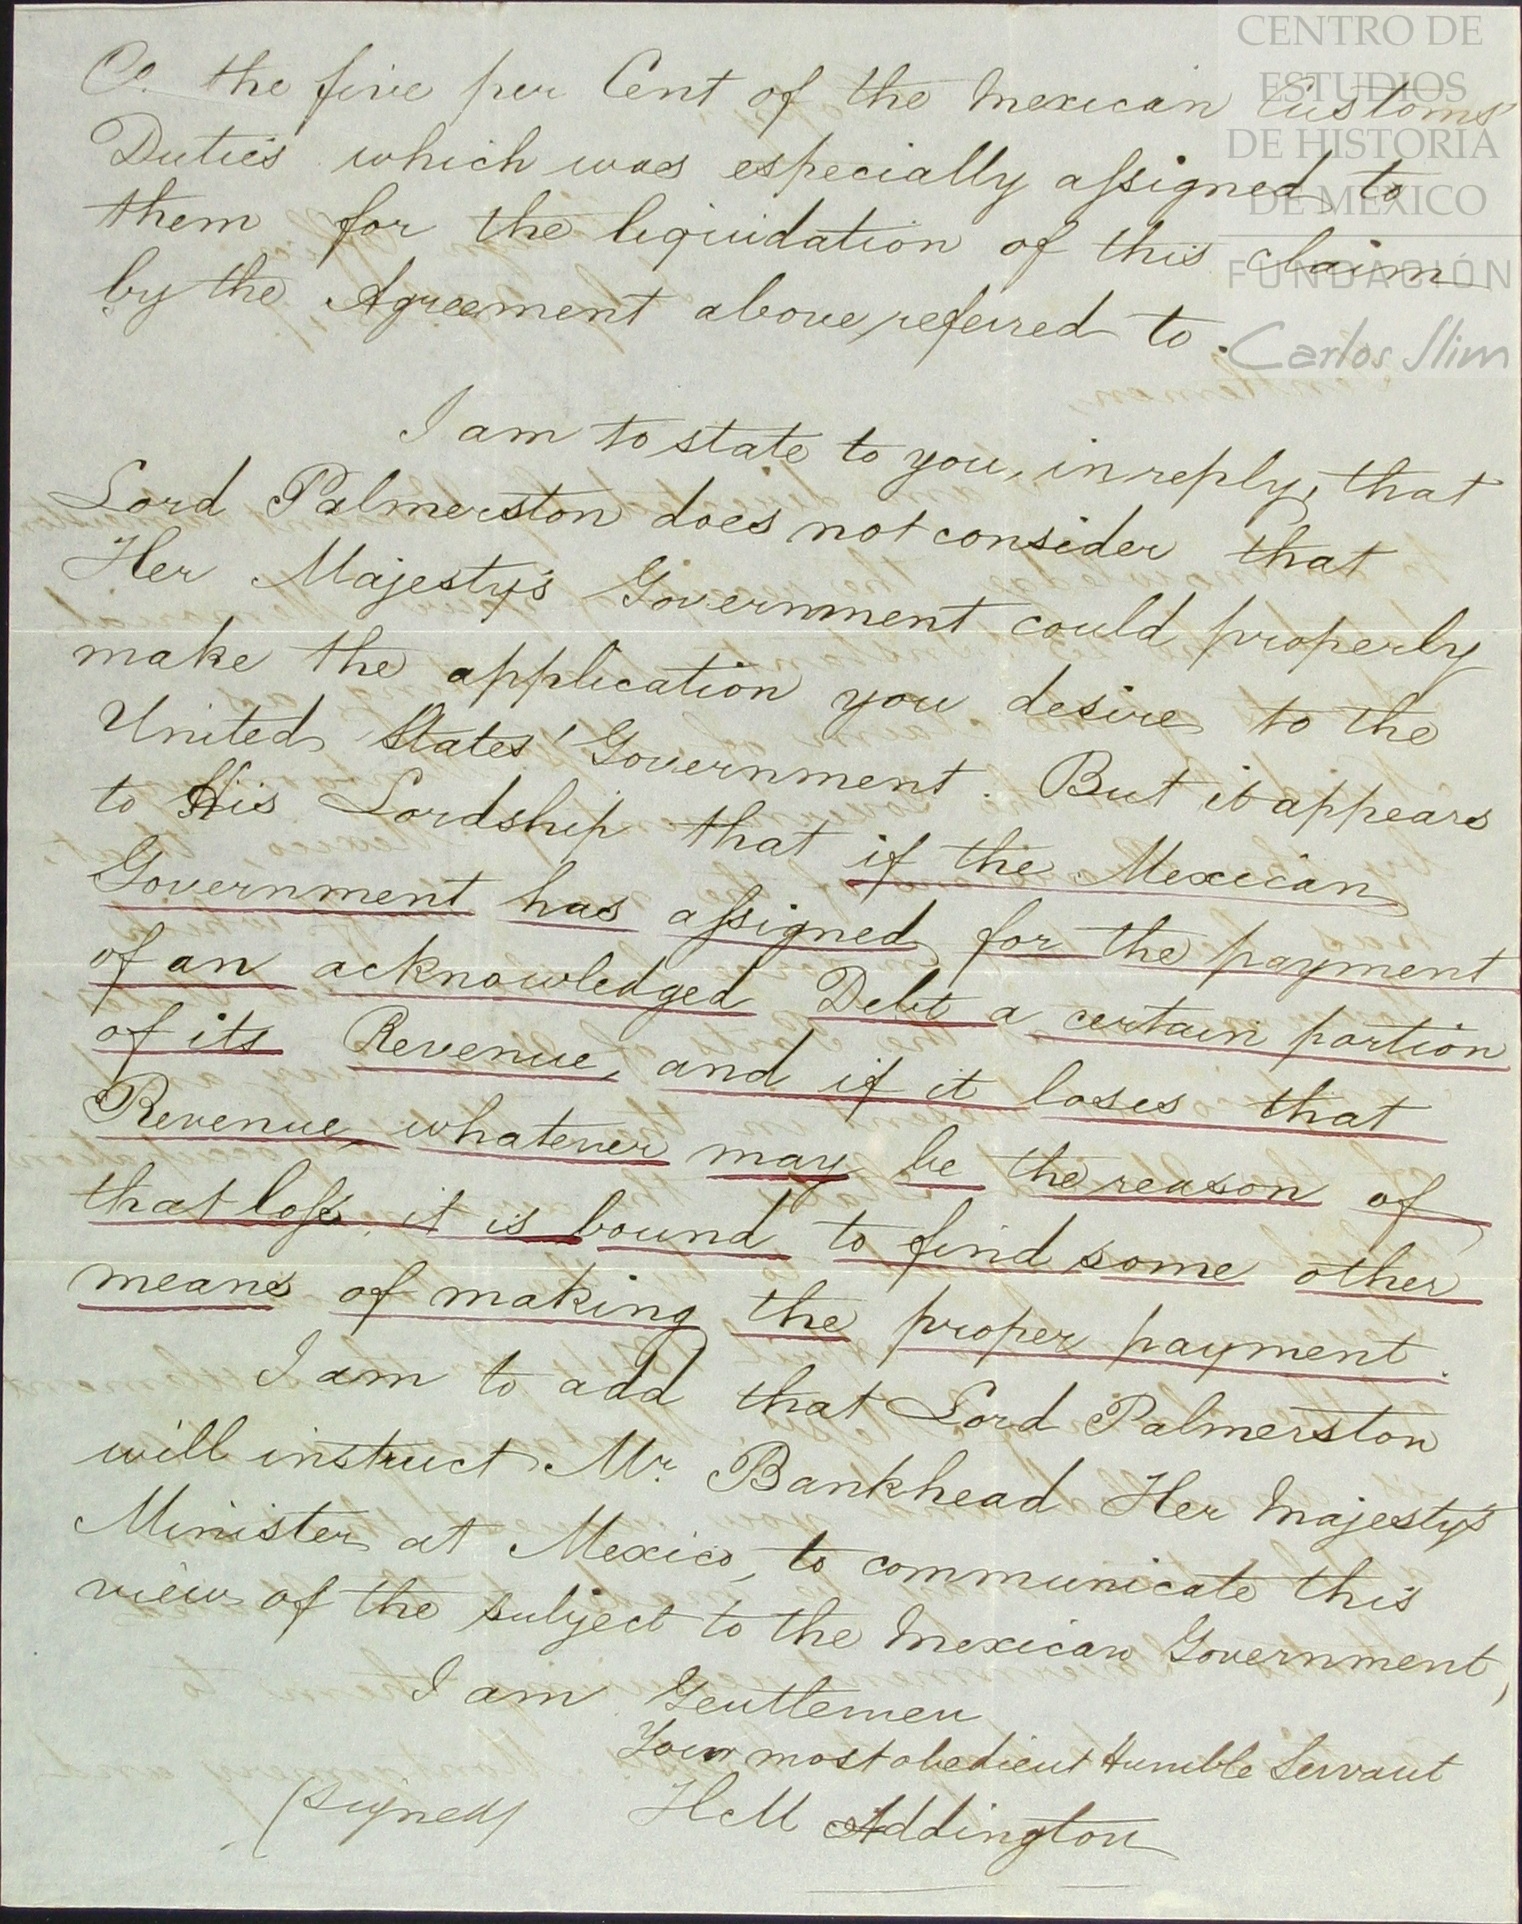 CENTRO DE
ESTUDIOS
DE HISTORIA
DE MÉXICO
FUNDACIÓN
Carlos Slim
Co. the five per Cent of the Mexican Customs
Duties which was especially assigned to
them for the liquidation of this claim
by the Agreement above referred to.
I am to state to you, in reply, that
Lord Palmerston does not consider that
Her Majesty's Government could properly
make the application you desire to the
United States' Government. But it appears
to His Lordship that if the Mexican
Government has assigned for the payment
of an acknowledged Debt a certain portion
of its Revenue, and if it loses that
Revenue, whatever may be the reason of
that loss, it is bound to find some other
means of making the proper payment.
I am to add that Lord Palmerston
will instruct Mr. Bankhead Her Majesty's
Minister at Mexico, to communicate this
view of the subject to the Mexican Government,
I am Gentlemen
Your most obedient Humble Servant
(Signed) H M Addington